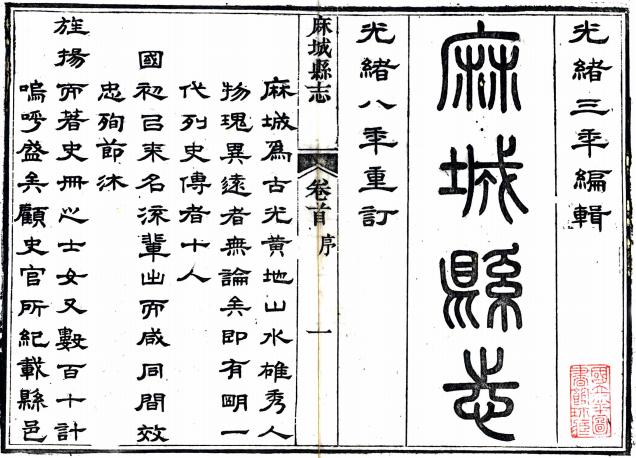 光緒三年編輯
麻城縣志
光緒八年重訂
麻城縣志
卷首
序
一
麻城爲古光黃地山水雄秀人
物瑰異遠者無論矣卽有明一
代列史傳者十人
國初已來名流輩出而咸同間效
忠殉節沐
旌揚而著史冊之士女又數百十計
嗚呼盛矣顧史官所紀載縣邑